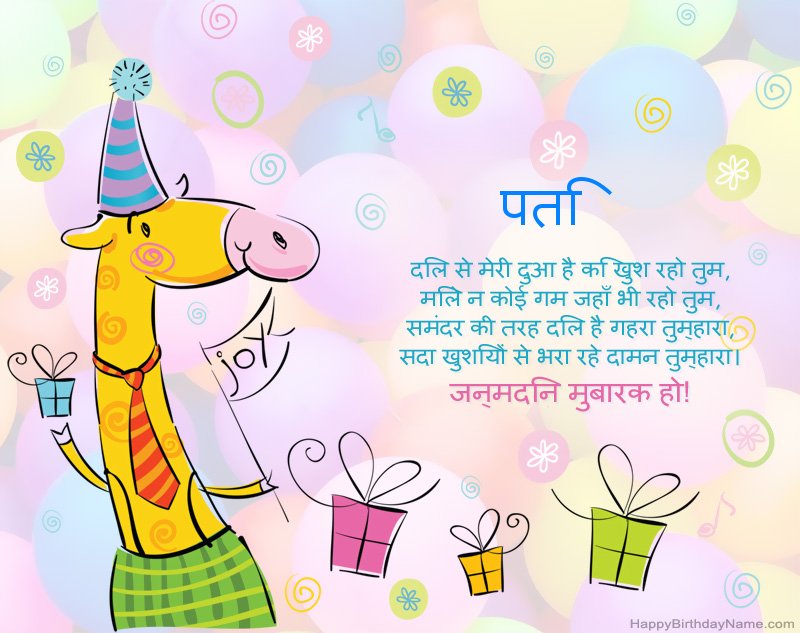 पति
दिल से मेरी दुआ है कि खुश रहो तुम,
मिले न कोई गम जहाँ भी रहो तुम,
समंदर की तरह दिल है गहरा तुम्हारा,
सदा खुशियों से भरा रहे दामन तुम्हारा।
जन्मदिन मुबारक हो!
joy
HappyBirthdayName.com